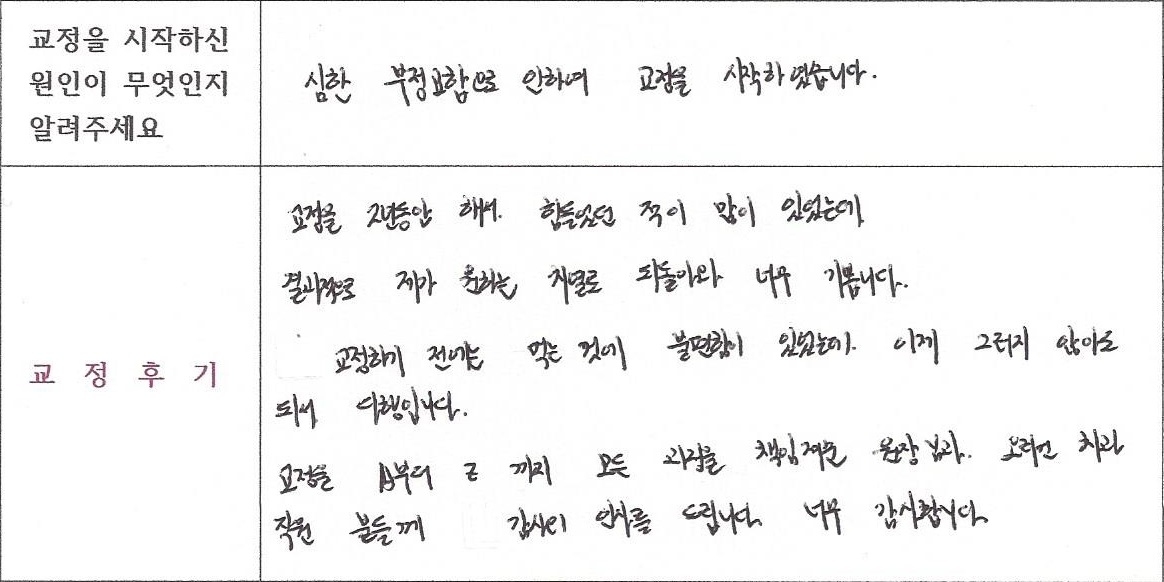 교정을 시작하신
원인이 무엇인지
알려주세요
심한 부정교합으로 인하여 교정을 시작하였습니다.
교정후기
교정을 2년동안 해서. 힘들었던 적이 많이 있었는데
결과적으로 제가 원하는 치열로 되돌아와 너무 기쁩니다.
교정하기 전에는 먹는 것에 불편함이 있었는데. 이제 그러지 않아도
되서 다행입니다.
교정을 A부터 Z 까지 모든 과정을 책임져준 원장님과. 오리건 치과
직원 분들께 감사의 인사를 드립니다. 너무 감사합니다.